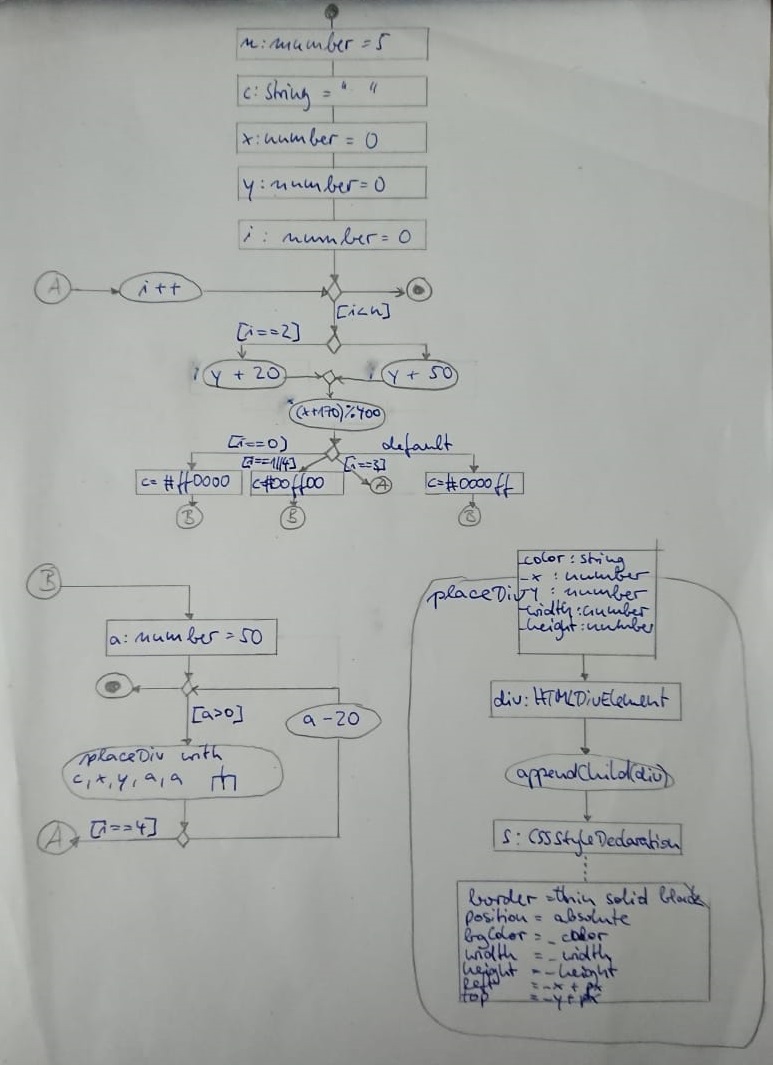 n: number = 5
c: String = " "
x: number = 0
y: number = 0
i: number = 0
A
i++
[i<n]
[i==2]
y + 20
y + 50
(x+170)%400
[i==0]
default
[i==1||4]
[i==3]
c= #ff0000
c=#00ff00
A
c=#0000ff
B
B
B
B
a: number = 50
[a>0]
a - 20
placeDiv with
c, x, y, a, a
A
[i==4]
placeDiv
_color: string
_x: number
_y: number
_width: number
_height: number
div: HTMLDivElement
appendChild(div)
s: CSSStyleDeclaration
border = thin solid black
position = absolute
bgColor = _color
width = _width
height = _height
left = _x + px
top = _y + px